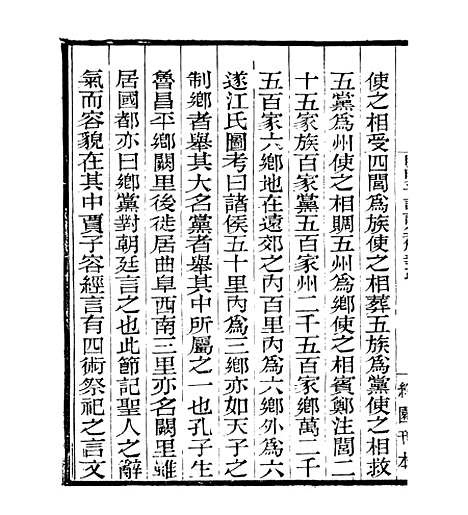 使之相受四閭爲族使之相葬五族爲黨使之相救
五黨爲州使之相賙五州爲鄉使之相賓鄭注閭二
十五家族百家黨五百家州二千五百家鄉萬二千
五百家六鄉地在遠郊之內百里內爲六鄉外爲六
遂江氏圖考曰諸侯五十里內爲三鄉亦如天子之
制鄉者舉其大名黨者舉其中所屬之一也孔子生
魯昌平鄉闕里後徙居曲阜西南三里亦名闕里雖
居國都亦曰鄉黨對朝廷言之也此節記聖人之辭
氣而容貌在其中賈子容經言有四術祭祀之言文